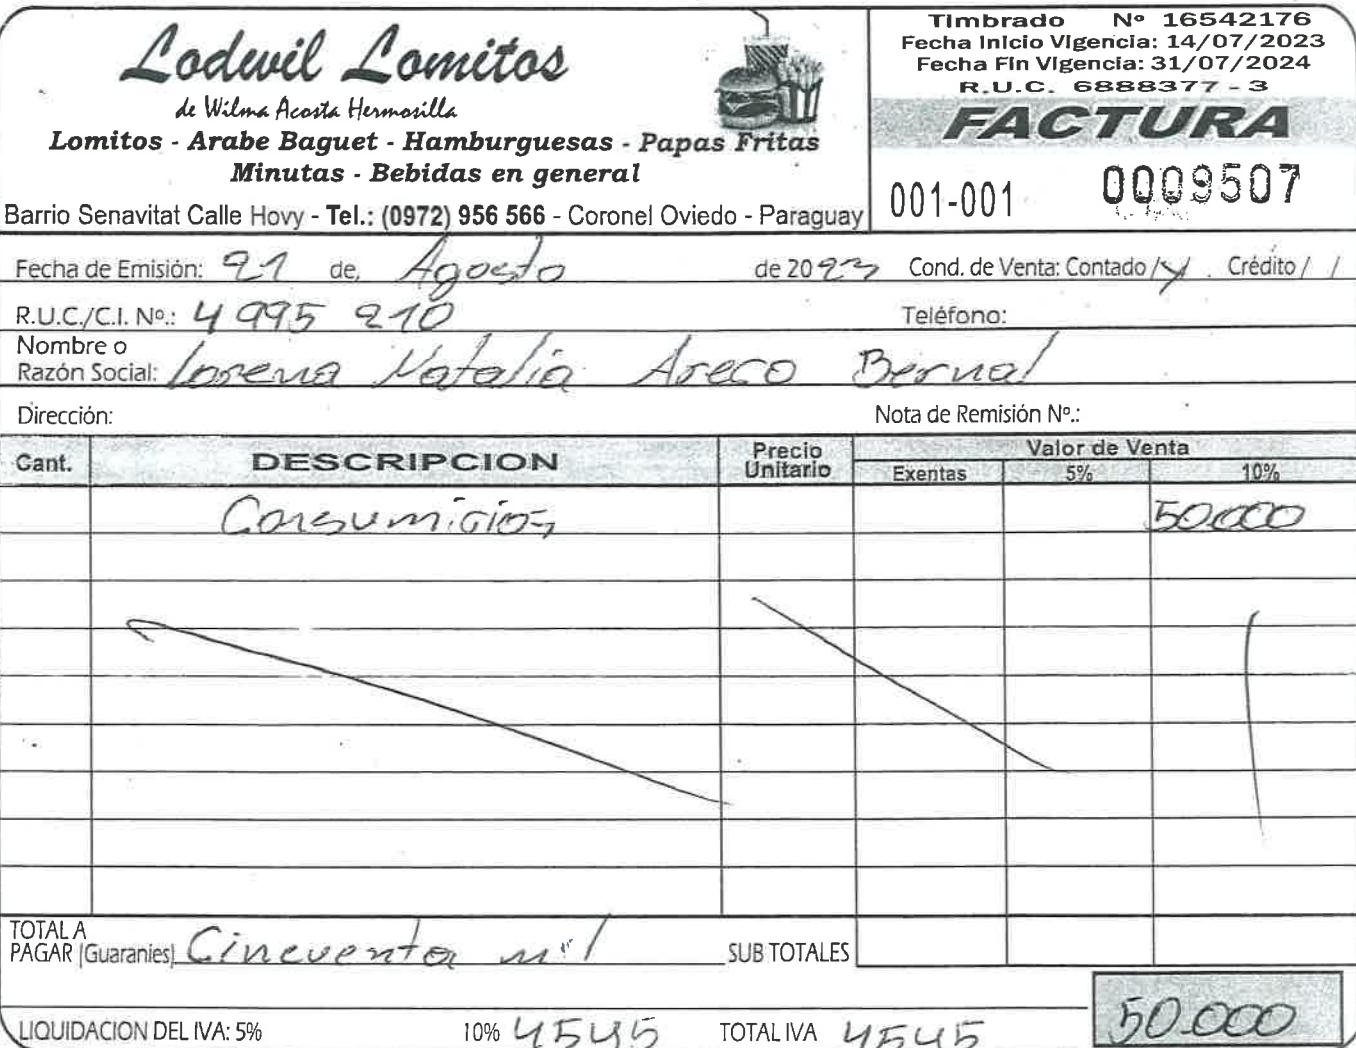 Lodwil Lomitos
de Wilma Acosta Hermosilla
Lomitos - Arabe Baguet - Hamburguesas - Papas Fritas
Minutas - Bebidas en general
Barrio Senavitat Calle Hovy - Tel.: (0972) 956 566 - Coronel Oviedo - Paraguay
Timbrado Nº 16542176
Fecha Inicio Vigencia: 14/07/2023
Fecha Fin Vigencia: 31/07/2024
R.U.C. 6888377 - 3
FACTURA
001-001 0009507
Fecha de Emisión: 21 de, Agosto de 2023 Cond. de Venta: Contado / / Crédito / /
R.U.C./C.I. Nº.: 4 995 210 Teléfono:
Nombre o
Razón Social: Lorena Natalia Areco Bernal
Dirección: Nota de Remisión Nº.:
Cant. DESCRIPCION Precio Unitario Valor de Venta
Exentas 5% 10%
50.000
TOTAL A
PAGAR (Guaranies) Cincuenta mil SUB TOTALES
50.000
LIQUIDACION DEL IVA: 5% 10% 4545 TOTAL IVA 4545